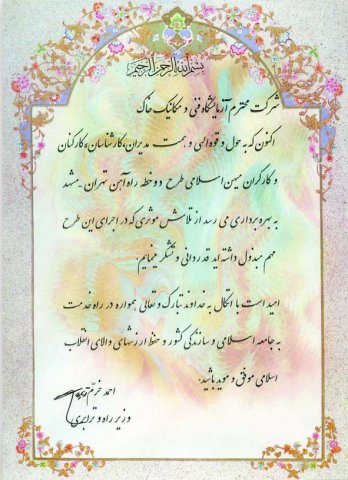 بسم الله الرحمن الرحیم
شرکت محترم آزمایشگاه فنی و مکانیک خاک
اکنون که به حول و قوه الهی و همت مدیران، کارشناسان، کارکنان
و کارگران میهن اسلامی طرح دوخطه راه آهن تهران - مشهد
به بهره برداری می رسد از تلاش موثری که در اجرای این طرح
مهم مبذول داشته اید قدردانی و تشکر مینمایم.
امید است با اتکال به خداوند تبارک و تعالی همواره در راه خدمت
به جامعه اسلامی و سازندگی کشور و حفظ ارزشهای والای انقلاب
اسلامی موفق و موید باشید.
احمد خرم
وزیر راه و ترابری